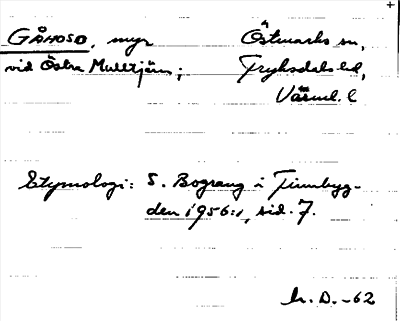 GÅHOSO, myr Östmarks sn,
vid Östra Mulltjärn; Fryksdals hd,
Värml. l
Etymologi: S. Bograng i Finnbyg-
den 1956:1, sid. 7.
h. D. -62